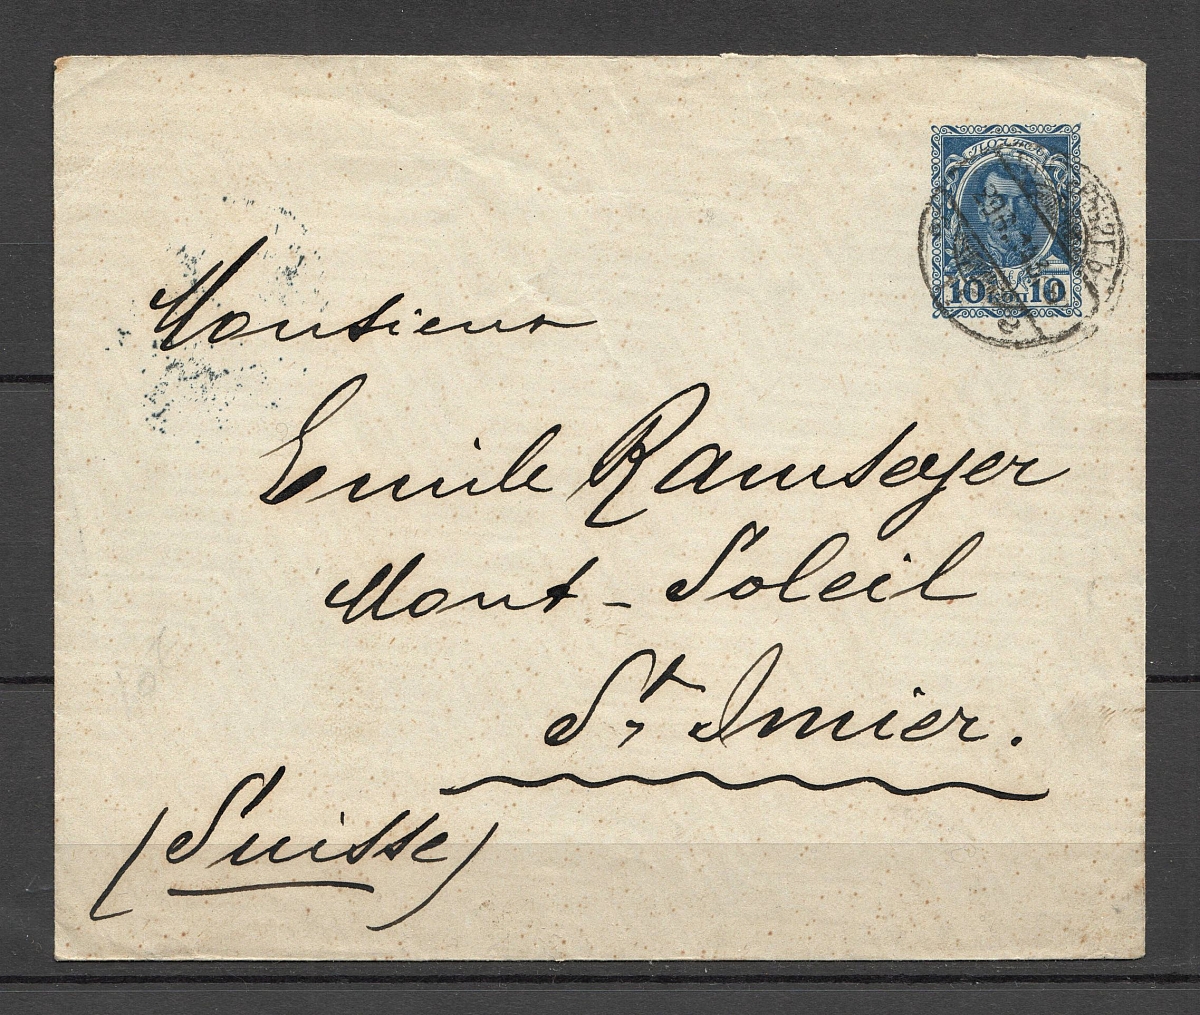 ПОЧТОВ
10 КОП 10
Monsieur
Emile Ramseyer
Mont-Soleil
St Imier.
(Suisse)